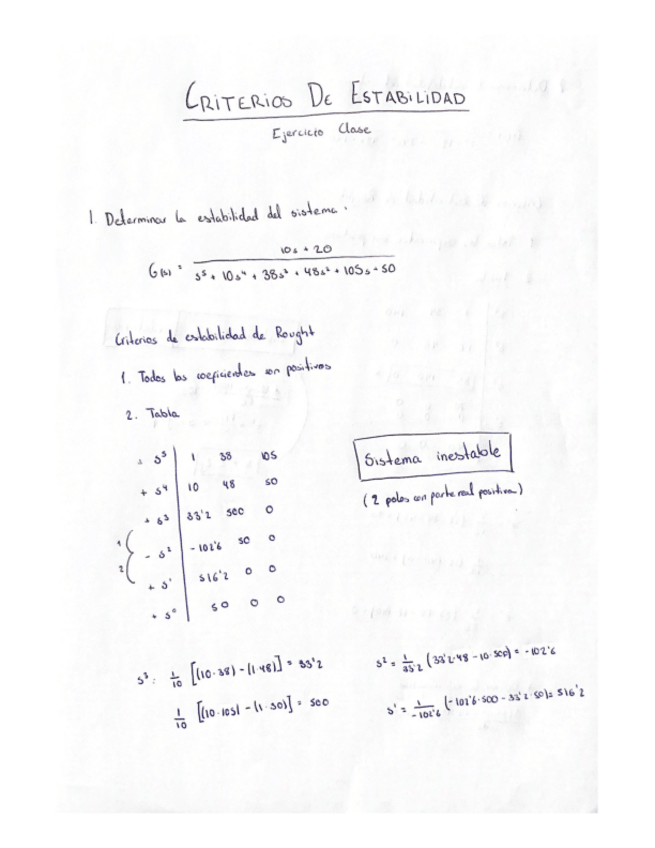 CRITERIOS DE ESTABILIDAD
Ejercicio Clase
1. Determinar la estabilidad del sistema:
G(s) = (10s + 20) / (s⁵ + 10s⁴ + 38s³ + 48s² + 105s + 50)
Criterios de estabilidad de Rought
1. Todos los coeficientes son positivos
2. Tabla
+ s⁵ | 1 38 105
+ s⁴ | 10 48 50
+ s³ | 33'2 500 0
1 - s² | -102'6 50 0
2 + s¹ | 516'2 0 0
+ s⁰ | 50 0 0
Sistema inestable
(2 polos con parte real positiva)
s³: 1/10 [(10·38) - (1·48)] = 33'2
1/10 [(10·105) - (1·50)] = 500
s² = 1/33'2 (33'2·48 - 10·500) = -102'6
s¹ = 1/-102'6 (-102'6·500 - 33'2·50) = 516'2